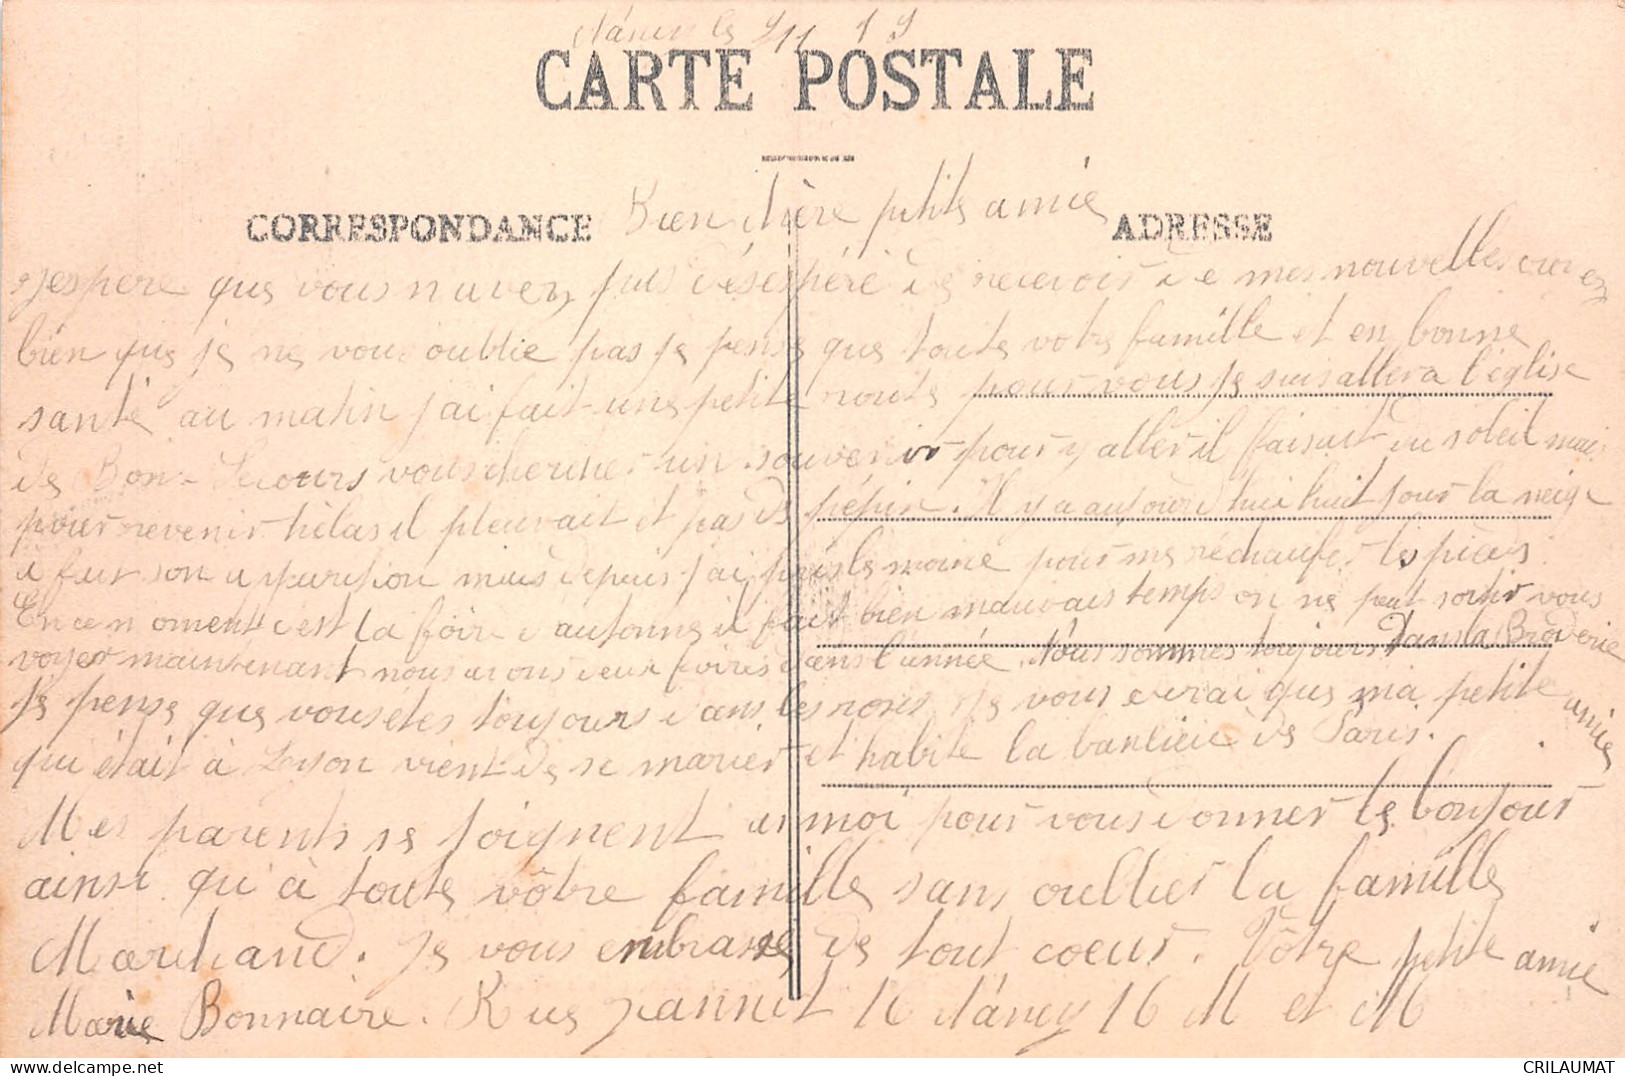 Nancy le 9 11 19
CARTE POSTALE
CORRESPONDANCE
ADRESSE
Bien chère petite amie
J'espère que vous n'avez pas désespéré de recevoir de mes nouvelles croyez
bien que je ne vous oublie pas je pense que toute votre famille et en bonne
santé au matin j'ai fait une petite route pour vous je suis aller a l'église
de Bon-Secours vous chercher un souvenir pour y aller il faisait du soleil mais
pour revenir hélas il pleuvait et pas de pépin. Il y a aujourd'hui huit jour la neige
a fait son apparition mais depuis j'ai pris le moine pour me réchaufer les pieds
En ce moment c'est la foire d'automne il fait bien mauvais temps on ne peut sortir vous
voyer maintenant nous avons deux foires dans l'année. Nous sommes toujours dans la Broderie
Je pense que vous êtes toujours dans les roses je vous dirai que ma petite amie
qui était à Lyson vient de se marier et habite la banlieu de Paris.
Mes parents se joignent a moi pour vous donner le bonjour
ainsi qu'à toute vôtre famille sans oublier la famille
Marchand. Je vous embrasse de tout coeur. Vôtre petite amie
Marie Bonnaire. Rue Jeannot 16 Nancy 16 M et M
CRILAUMAT